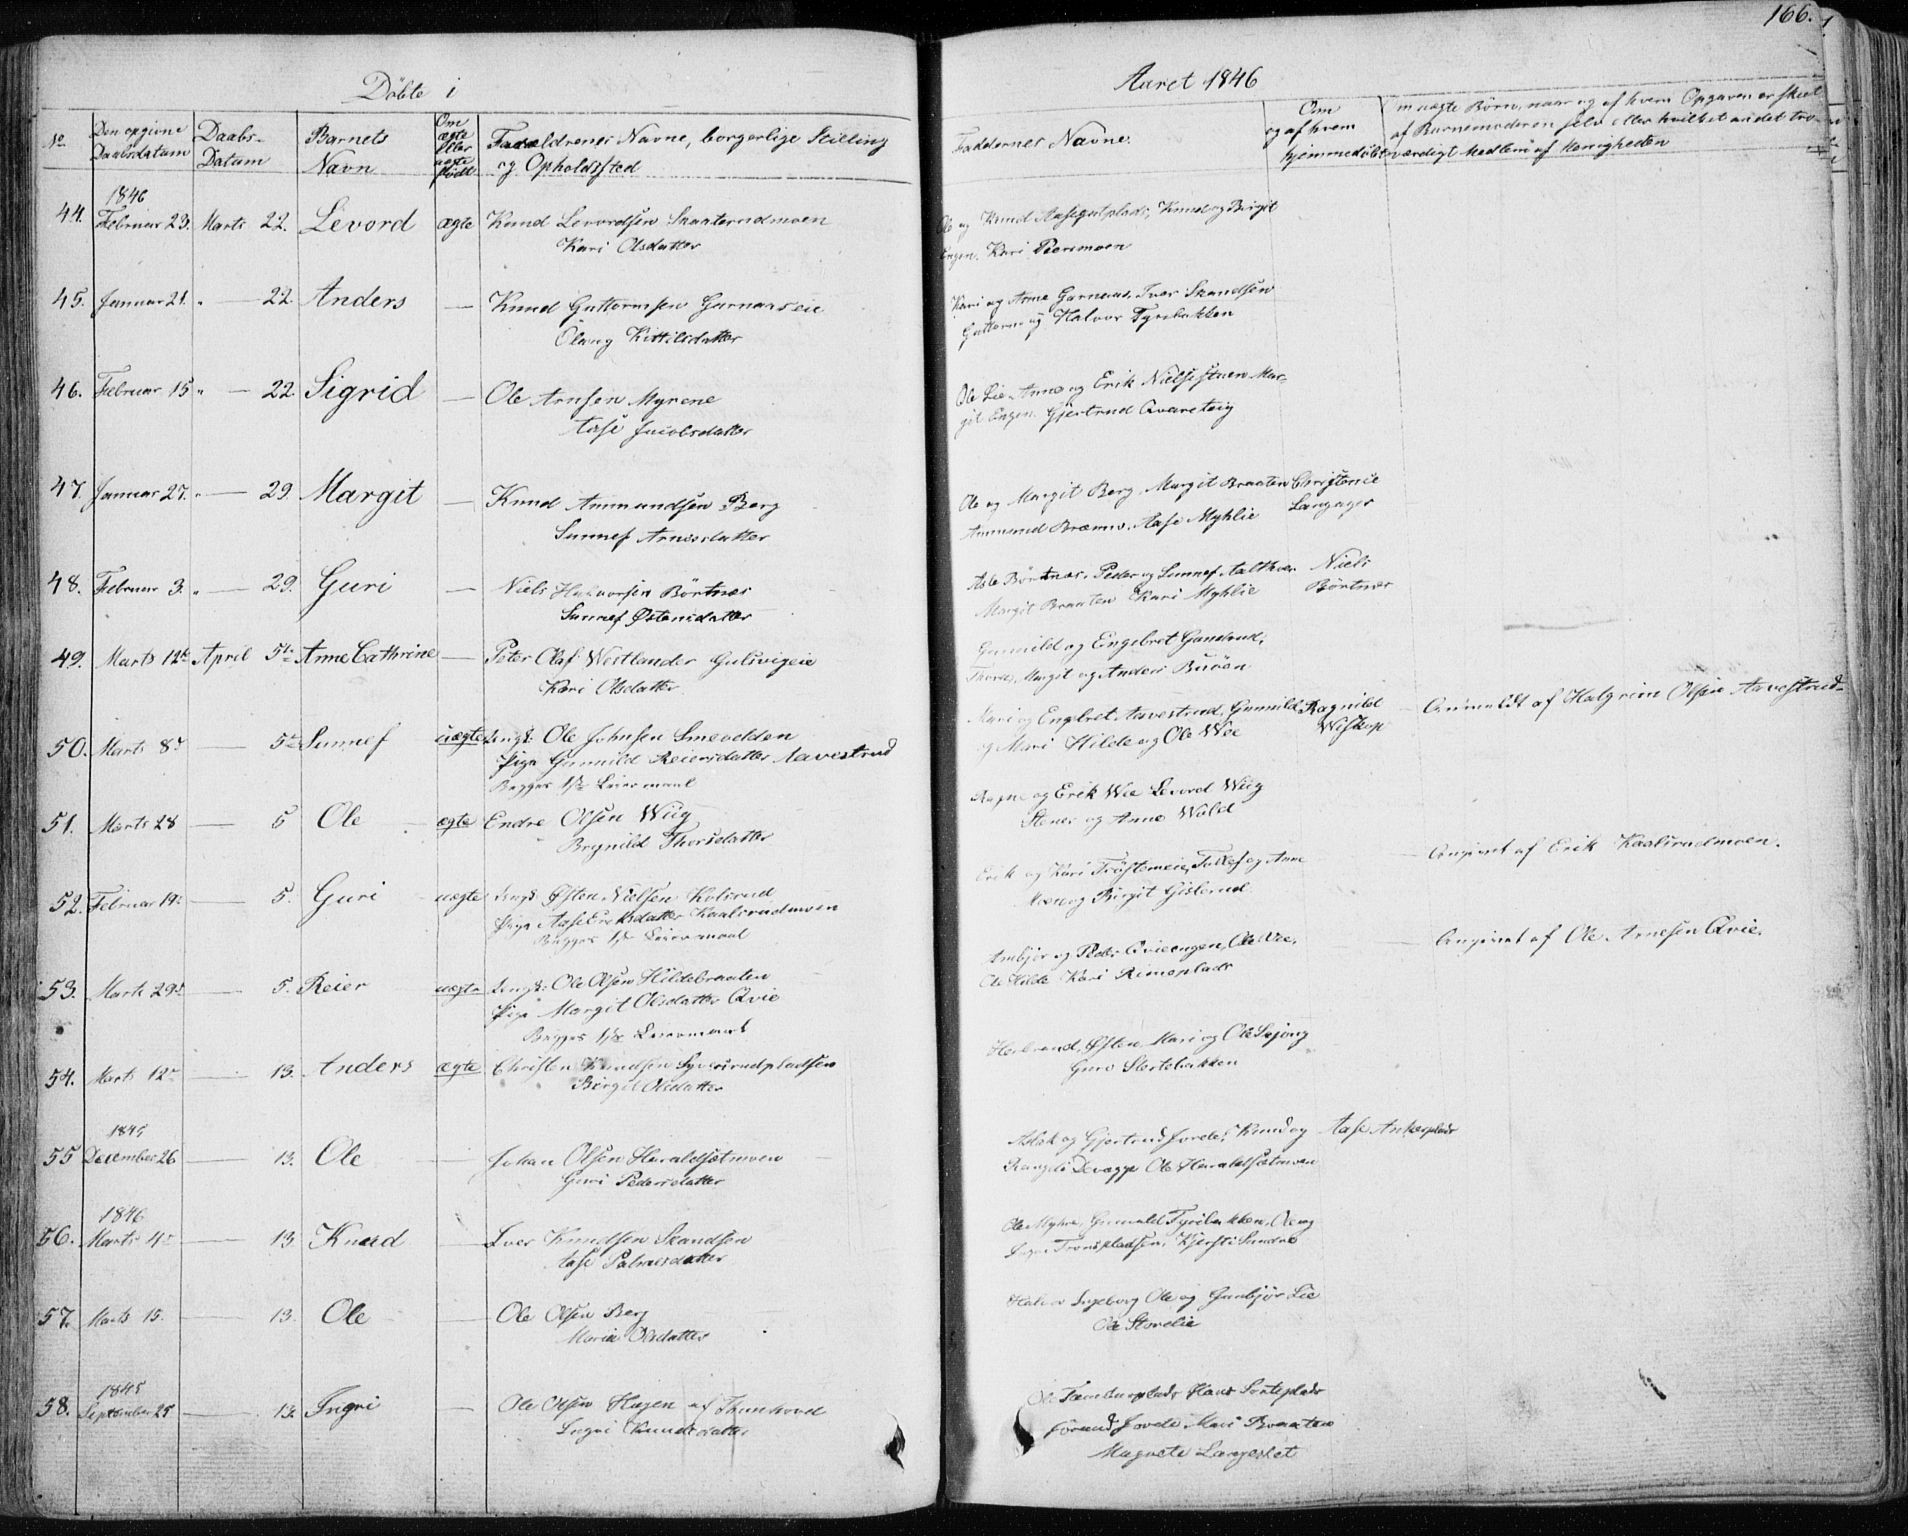 166.
Döbte i
Aaret 1846
No
Den opgivne Daabsdatum
Daabs-Datum
Barnets Navn
Om ægte eller uægte födt
Forældrenes Navne, borgerlige Stilling og Opholdssted
Faddernes Navne
Om og af hvem hjemmedöbt
uægte Börn, naar og af hvem Opgaven er skeet
af Barnemoderen selv eller hvilket andet tro-
værdigt Medlem af Menigheden
1846
44. Februar 23. Marts 22. Levord ægte Knud Levordsen Skaaterudmoen
Kari Olsdatter
Ole og Knud Aasegutplads, Knud og Birgit
Engen. Kari Peersmoen
45. Januar 21. " 22. Anders — Knud Guttormsen Garnaaseie
Olaug Kittilsdatter
Kari og Anne Garnaas, Iver Skandsen
Guttorm og Halvor Tyribakken
46. Februar 15 " 22 Sigrid — Ole Arnsen Myrene
Aase Jacobsdatter
Ole Lie, Anne og Erik Nielsestuen Mar-
git Engen. Gjertrud Qvareteig
47. Januar 27. " 29. Margit — Knud Ammundsen Berg
Sunnef Arnesdatter
Ole og Margit Berg, Margit Braaten Christonie
Ammund Bræmo, Aase Myhlie Langager
48. Februar 3. " 29. Guri — Niels Halvorsen Börtnæs
Sunnef Østensdatter
Asle Börtnæs, Peder og Sunnef Niels
Margit Braaten Kari Myhlie Börtnæs
49. Marts 12 April 5 Anne Cathrine — Peter Olaf Westlander Gulsvigeie
Kari Olsdatter
Gunnild og Engebret Gandrud,
Margit og Anders Buöen
50. Marts 8 — 5 Sunnef uægte Ungk: Ole Johnsen Smevolden
Pige Gunnild Reiersdatter Aavestrud
Begges 1ste Leiermaal
Mari og Engbret Aavestrud, Gunnild Ragnild
og Mari Hilde og Ole Wee Wiskop
Anmeldt af Halgrim Olsen Aavestrud
51. Marts 28 — 5 Ole ægte Endre Olsen Wiig
Brynild Thorsdatter
Ragne og Erik Wee Levord Wiig
Stener og Anne Wold
52. Februar 19 — 5. Guri uægte Ungk: Østen Nielsen Kolsrud
Pige Aase Eriksdatter Kaalsrudmoen
Begges 1ste Leiermaal
Erik og Kari Tröstemeie, Tollef og Anne
Moen og Birgit Gislerud
Angivet af Erik Kaalsrudmoen.
53. Marts 29 — 5. Reier uægte Ungk: Ole Olsen Hildebraaten
Pige Margit Olsdatter Qvie
Begges 1ste Leiermaal
Ambjör og Peder Qvieengen, Ole Wee,
Ole Hilde Kari Rimeplads
Angivet af Ole Arnesen Qvie.
54. Marts 12 — 13. Anders ægte Christen Knudsen Syversrudpladsen
Birgit Olsdatter
Herbrand, Østen, Mari og Ole Sejong
Guro Slettebakken
1845
55 December 26 — 13. Ole — Johan Olsen Haraldsætmoen
Guri Pedersdatter
Aslak og Gjertrud Jorde, Knud og Aase Ankerplads
Rangdi Devegge Ole Haraldsætmoen
1846
56. Marts 4 — 13 Knud — Iver Knudsen Skandsen
Aase Palmesdatter
Ole Myhre, Gunnild Tyribakken, Ole og
Tronspladsen, Kjersti Sundre
57. Marts 15. — 13. Ole — Ole Olsen Berg
Marie Olsdatter
Halvor Ingeborg Ole og Gunbjör Lie
Ole Storelie
1845
58. September 25 — 13. Ingri — Ole Olsen Hagen af Tunhovd
Ingri Knudsdatter
Hans Sorteplads
Jorde Mari Braaten
Magnete Langeslet